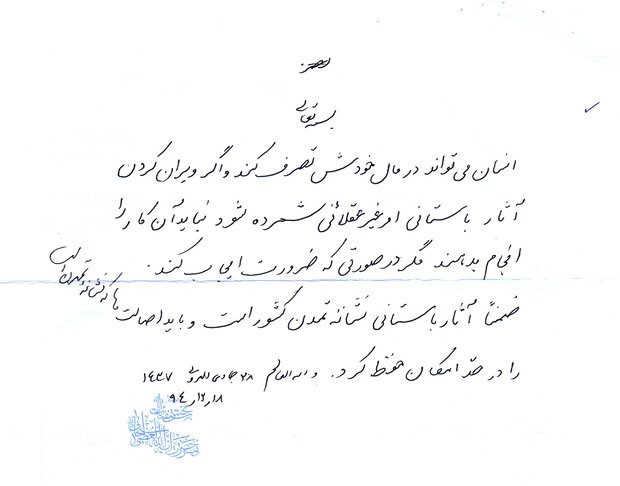 بسمه تعالی
انسان می‌تواند در مال خودش تصرف کند و اگر ویران کردن
آثار باستانی امر غیر عقلائی شمرده شود نباید آن کار را
انجام بدهند مگر در صورتی که ضرورت ایجاب کند.
ضمناً آثار باستانی نشانه تمدن کشور است و باید اصالت‌ها
که نشانه تمدن است
را در حدّ امکان حفظ کرد. والله العالم ۲۸ جمادی الاولی ۱۴۳۷
۱۸ر۱۲ر۹٤